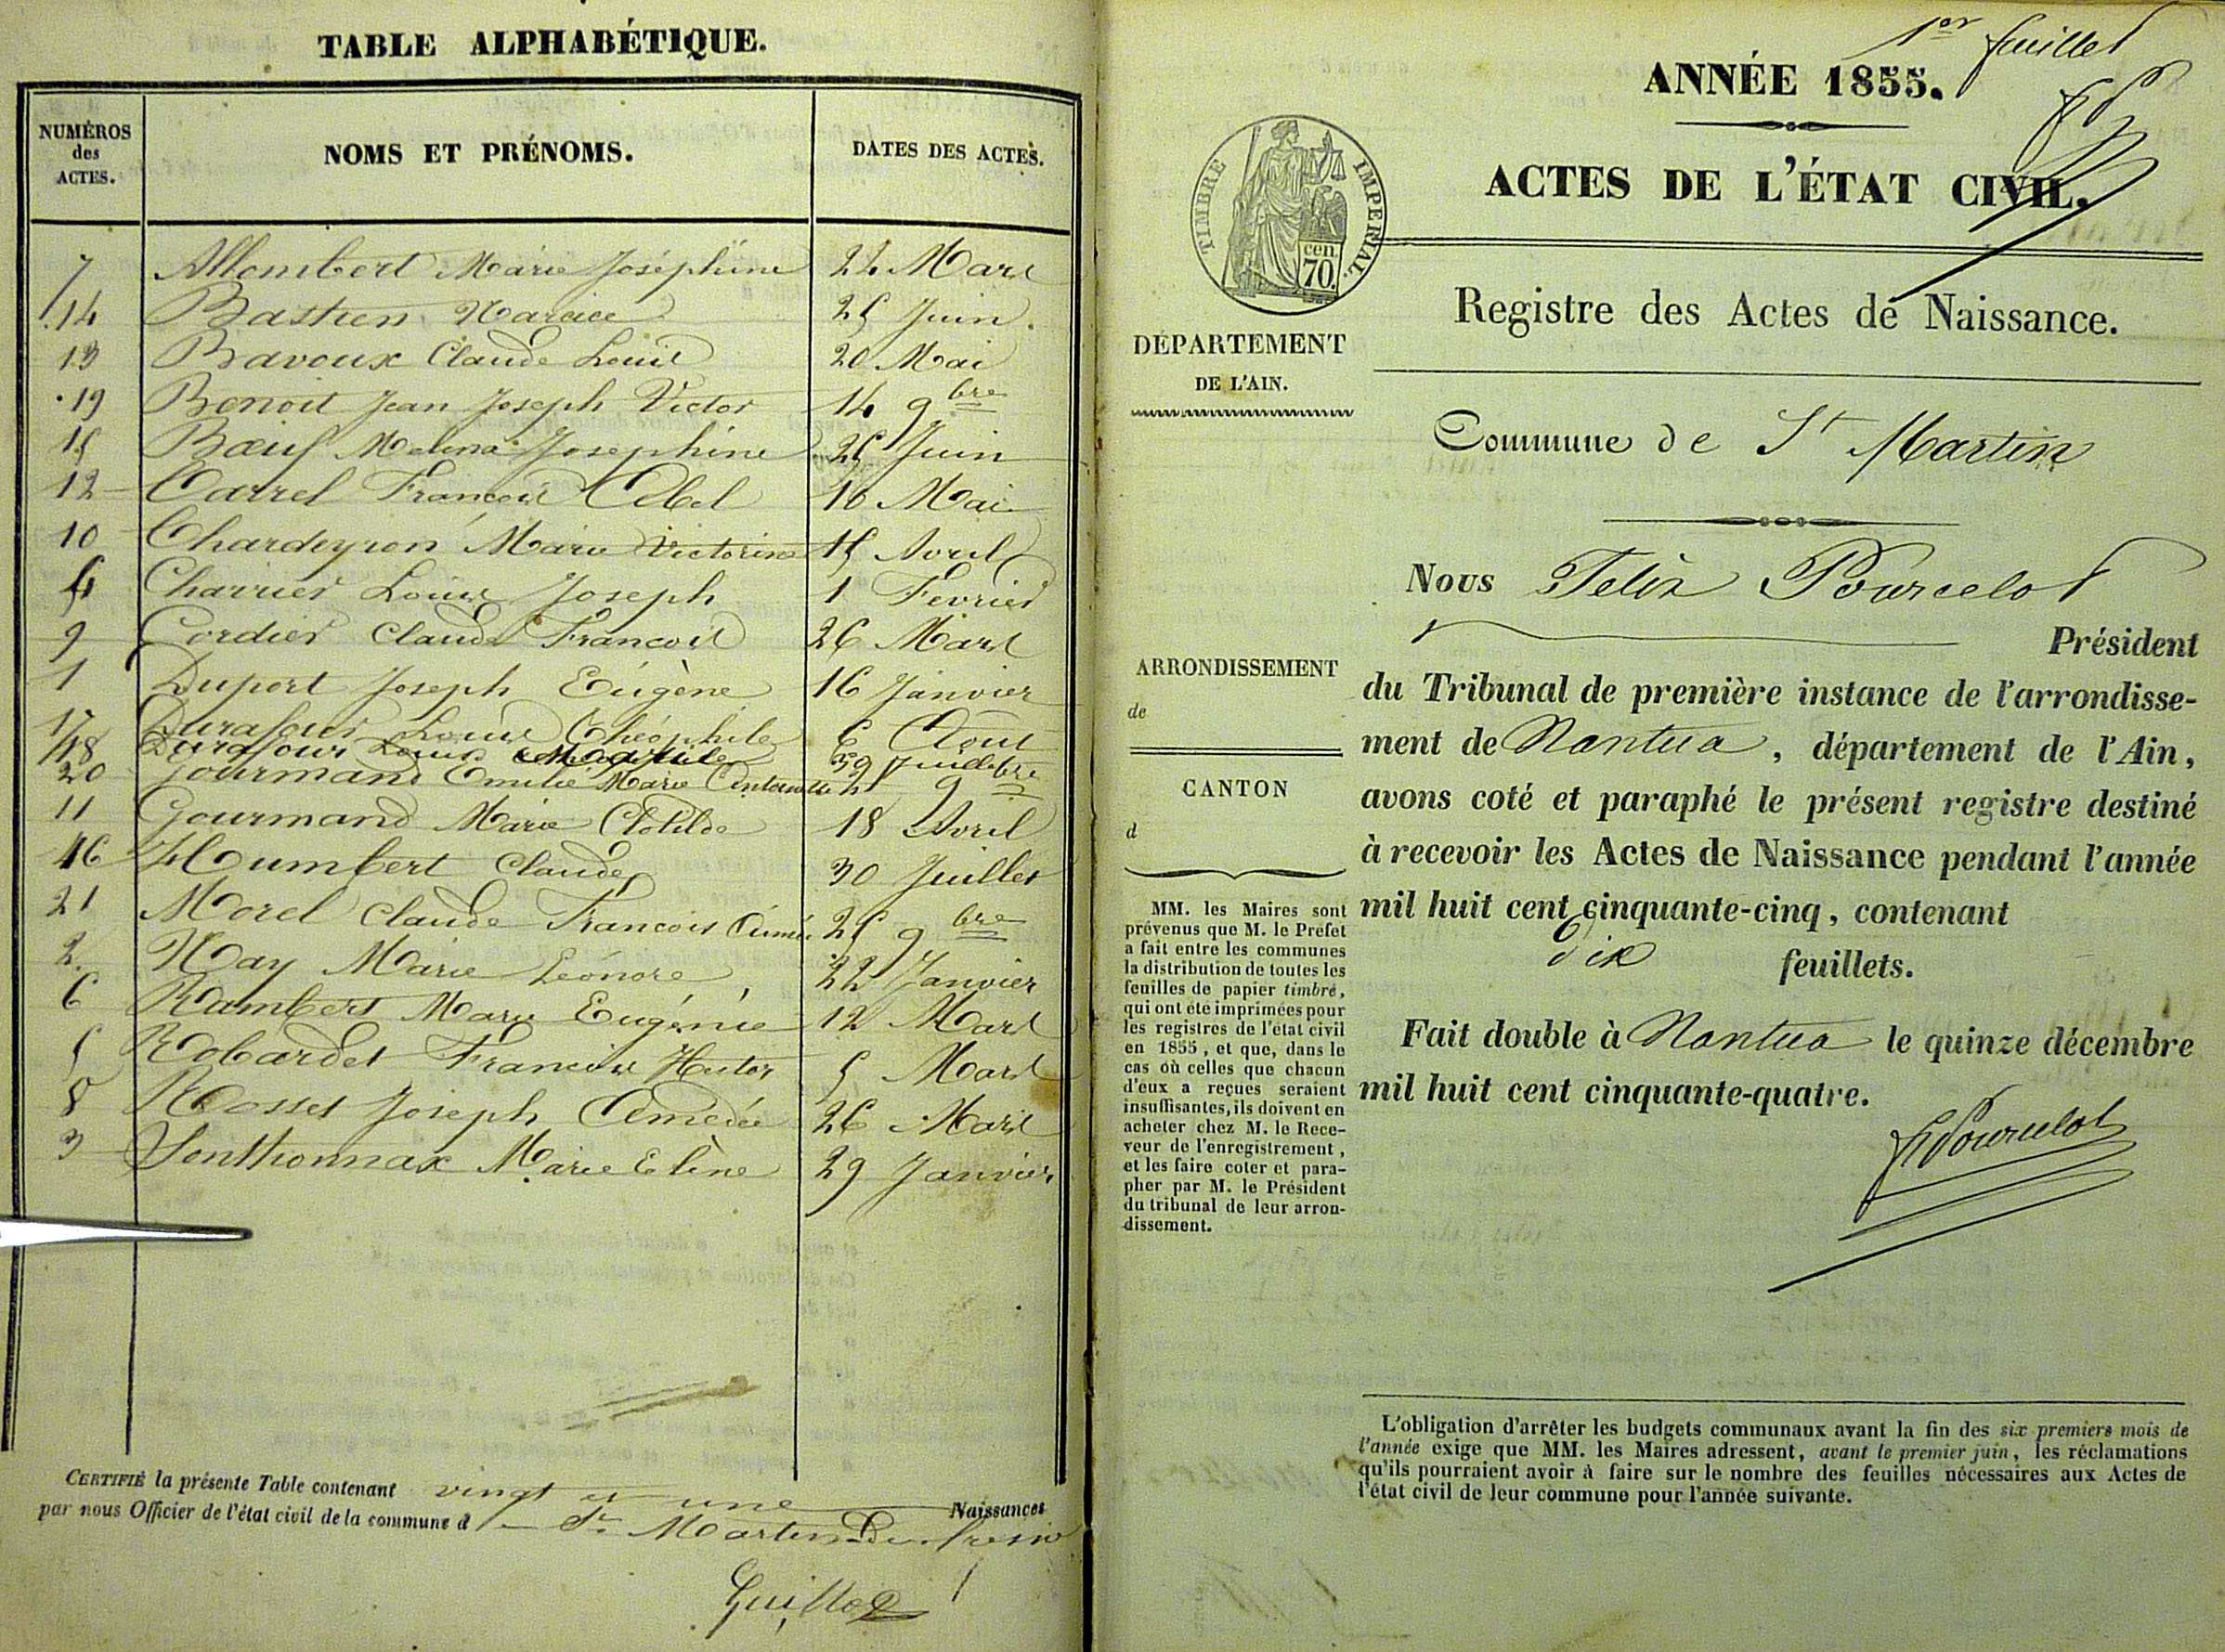 TABLE ALPHABÉTIQUE.
NUMÉROS des ACTES. NOMS ET PRÉNOMS. DATES DES ACTES.
7 Allombert Marie Joséphine 22 Mars
14 Bastien Narcice 25 Juin.
13 Bavoux Claude Louis 20 Mai
19 Benoit Jean Joseph Victor 14 9bre
15 Bœuf Melina Josephine 25 Juin
12 Carrel Francois Abel 10 Mai
10 Chardeyron Marie Victorine 15 Avril
4 Charrier Louis Joseph 1 Fevrier
9 Cordier Claude Francois 26 Mars
1 Duport Joseph Eugène 16 Janvier
17 Durafour Louis Théophile 6 Aout
18 Durafour Louis
20 Gourmand Emilie Marie 9bre
11 Gourmand Marie Clotilde 18 Avril
16 Humbert Claude 30 Juillet
21 Morel Claude Francois Aimé 25 9bre
2. Nay Marie Léonore 22 Janvier
6 Rambert Marie Eugénie 12 Mars
5 Robardet Francois Hector 5 Mars
8 Rosset Joseph Amédée 26 Mars
3 Sonthonnax Marie Elène 29 Janvier
CERTIFIÉ la présente Table contenant vingt et une Naissances
par nous Officier de l'état civil de la commune d St Martin du fresne
Guillot
1er feuillet
ANNÉE 1855.
ACTES DE L'ÉTAT CIVIL.
TIMBRE IMPÉRIAL.
cen
70.
Registre des Actes de Naissance.
DÉPARTEMENT
DE L'AIN.
Commune de St Martin
Nous Félix Pourcelot
Président
ARRONDISSEMENT
de
du Tribunal de première instance de l'arrondisse-
ment de Nantua, département de l'Ain,
CANTON
d
avons coté et paraphé le présent registre destiné
à recevoir les Actes de Naissance pendant l'année
mil huit cent cinquante-cinq, contenant
dix feuillets.
Fait double à Nantua le quinze décembre
mil huit cent cinquante-quatre.
FPourcelot
MM. les Maires sont
prévenus que M. le Préfet
a fait entre les communes
la distribution de toutes les
feuilles de papier timbré,
qui ont été imprimées pour
les registres de l'état civil
en 1855, et que, dans le
cas où celles que chacun
d'eux a reçues seraient
insuffisantes, ils doivent en
acheter chez M. le Rece-
veur de l'enregistrement,
et les faire coter et para-
pher par M. le Président
du tribunal de leur arron-
dissement.
L'obligation d'arrêter les budgets communaux avant la fin des six premiers mois de
l'année exige que MM. les Maires adressent, avant le premier juin, les réclamations
qu'ils pourraient avoir à faire sur le nombre des feuilles nécessaires aux Actes de
l'état civil de leur commune pour l'année suivante.